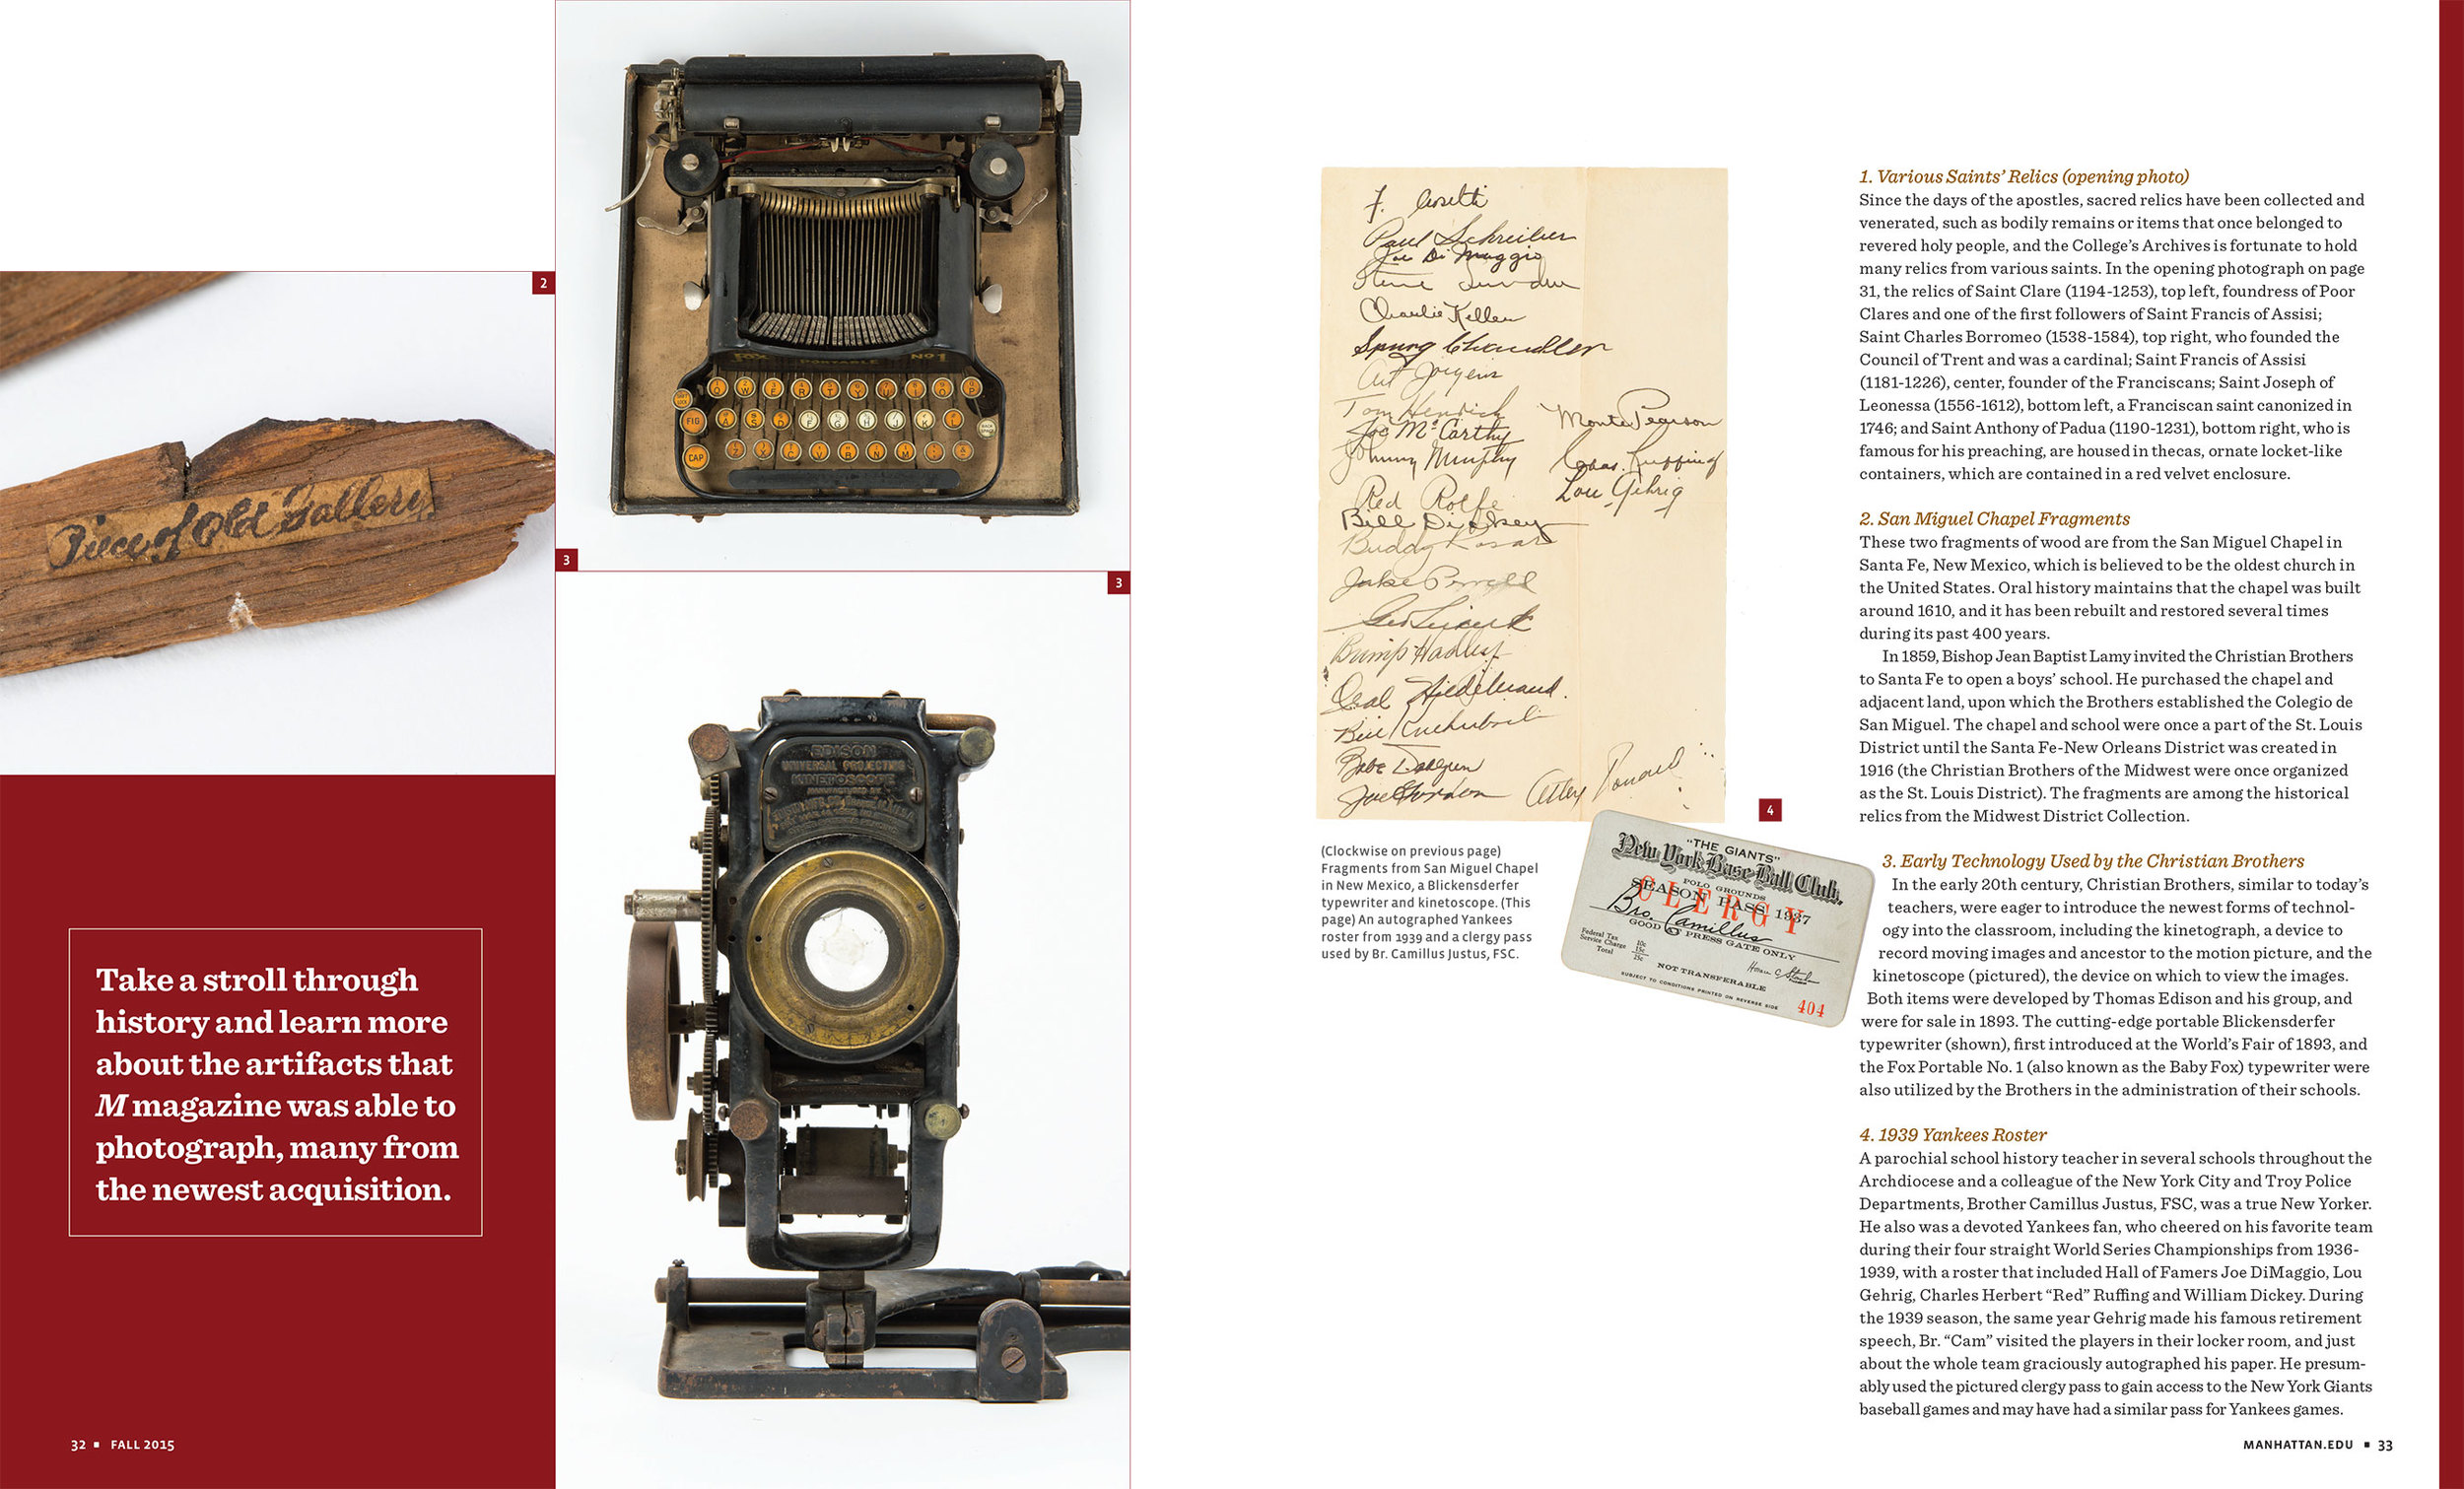 2
Piece of Old Gallery
FOX PORTABLE No 1
Q W E R T Y U I O P
FIG A S D F G H J K L
CAP Z X C V B N M
3
3
EDISON
UNIVERSAL PROJECTING
KINETOSCOPE
MANUFACTURED BY
Take a stroll through
history and learn more
about the artifacts that
M magazine was able to
photograph, many from
the newest acquisition.
32 ■ FALL 2015
F. Crosetti
Paul Schreiber
Joe Di Maggio
Steve Sundra
Charlie Keller
Spurg Chandler
Art Jorgens
Tom Henrich
Joe McCarthy
Johnny Murphy
Red Rolfe
Bill Dickey
Buddy Rosar
Jake Powell
Geo Selkirk
Bump Hadley
Oral Hildebrand.
Bill Knickerbocker
Babe Dahlgren
Joe Gordon
Monte Pearson
Chas. Ruffing
Lou Gehrig
Atley Donald
4
(Clockwise on previous page)
Fragments from San Miguel Chapel
in New Mexico, a Blickensderfer
typewriter and kinetoscope. (This
page) An autographed Yankees
roster from 1939 and a clergy pass
used by Br. Camillus Justus, FSC.
"THE GIANTS"
New York Base Ball Club.
POLO GROUNDS
SEASON PASS 1937
CLERGY
Bro. Camillus
GOOD PRESS GATE ONLY
Federal Tax 10c
Service Charge 15c
Total 25c
NOT TRANSFERABLE
SUBJECT TO CONDITIONS PRINTED ON REVERSE SIDE
404
1. Various Saints’ Relics (opening photo)
Since the days of the apostles, sacred relics have been collected and
venerated, such as bodily remains or items that once belonged to
revered holy people, and the College’s Archives is fortunate to hold
many relics from various saints. In the opening photograph on page
31, the relics of Saint Clare (1194-1253), top left, foundress of Poor
Clares and one of the first followers of Saint Francis of Assisi;
Saint Charles Borromeo (1538-1584), top right, who founded the
Council of Trent and was a cardinal; Saint Francis of Assisi
(1181-1226), center, founder of the Franciscans; Saint Joseph of
Leonessa (1556-1612), bottom left, a Franciscan saint canonized in
1746; and Saint Anthony of Padua (1190-1231), bottom right, who is
famous for his preaching, are housed in thecas, ornate locket-like
containers, which are contained in a red velvet enclosure.
2. San Miguel Chapel Fragments
These two fragments of wood are from the San Miguel Chapel in
Santa Fe, New Mexico, which is believed to be the oldest church in
the United States. Oral history maintains that the chapel was built
around 1610, and it has been rebuilt and restored several times
during its past 400 years.
In 1859, Bishop Jean Baptist Lamy invited the Christian Brothers
to Santa Fe to open a boys’ school. He purchased the chapel and
adjacent land, upon which the Brothers established the Colegio de
San Miguel. The chapel and school were once a part of the St. Louis
District until the Santa Fe-New Orleans District was created in
1916 (the Christian Brothers of the Midwest were once organized
as the St. Louis District). The fragments are among the historical
relics from the Midwest District Collection.
3. Early Technology Used by the Christian Brothers
In the early 20th century, Christian Brothers, similar to today’s
teachers, were eager to introduce the newest forms of technol-
ogy into the classroom, including the kinetograph, a device to
record moving images and ancestor to the motion picture, and the
kinetoscope (pictured), the device on which to view the images.
Both items were developed by Thomas Edison and his group, and
were for sale in 1893. The cutting-edge portable Blickensderfer
typewriter (shown), first introduced at the World’s Fair of 1893, and
the Fox Portable No. 1 (also known as the Baby Fox) typewriter were
also utilized by the Brothers in the administration of their schools.
4. 1939 Yankees Roster
A parochial school history teacher in several schools throughout the
Archdiocese and a colleague of the New York City and Troy Police
Departments, Brother Camillus Justus, FSC, was a true New Yorker.
He also was a devoted Yankees fan, who cheered on his favorite team
during their four straight World Series Championships from 1936-
1939, with a roster that included Hall of Famers Joe DiMaggio, Lou
Gehrig, Charles Herbert “Red” Ruffing and William Dickey. During
the 1939 season, the same year Gehrig made his famous retirement
speech, Br. “Cam” visited the players in their locker room, and just
about the whole team graciously autographed his paper. He presum-
ably used the pictured clergy pass to gain access to the New York Giants
baseball games and may have had a similar pass for Yankees games.
MANHATTAN.EDU ■ 33